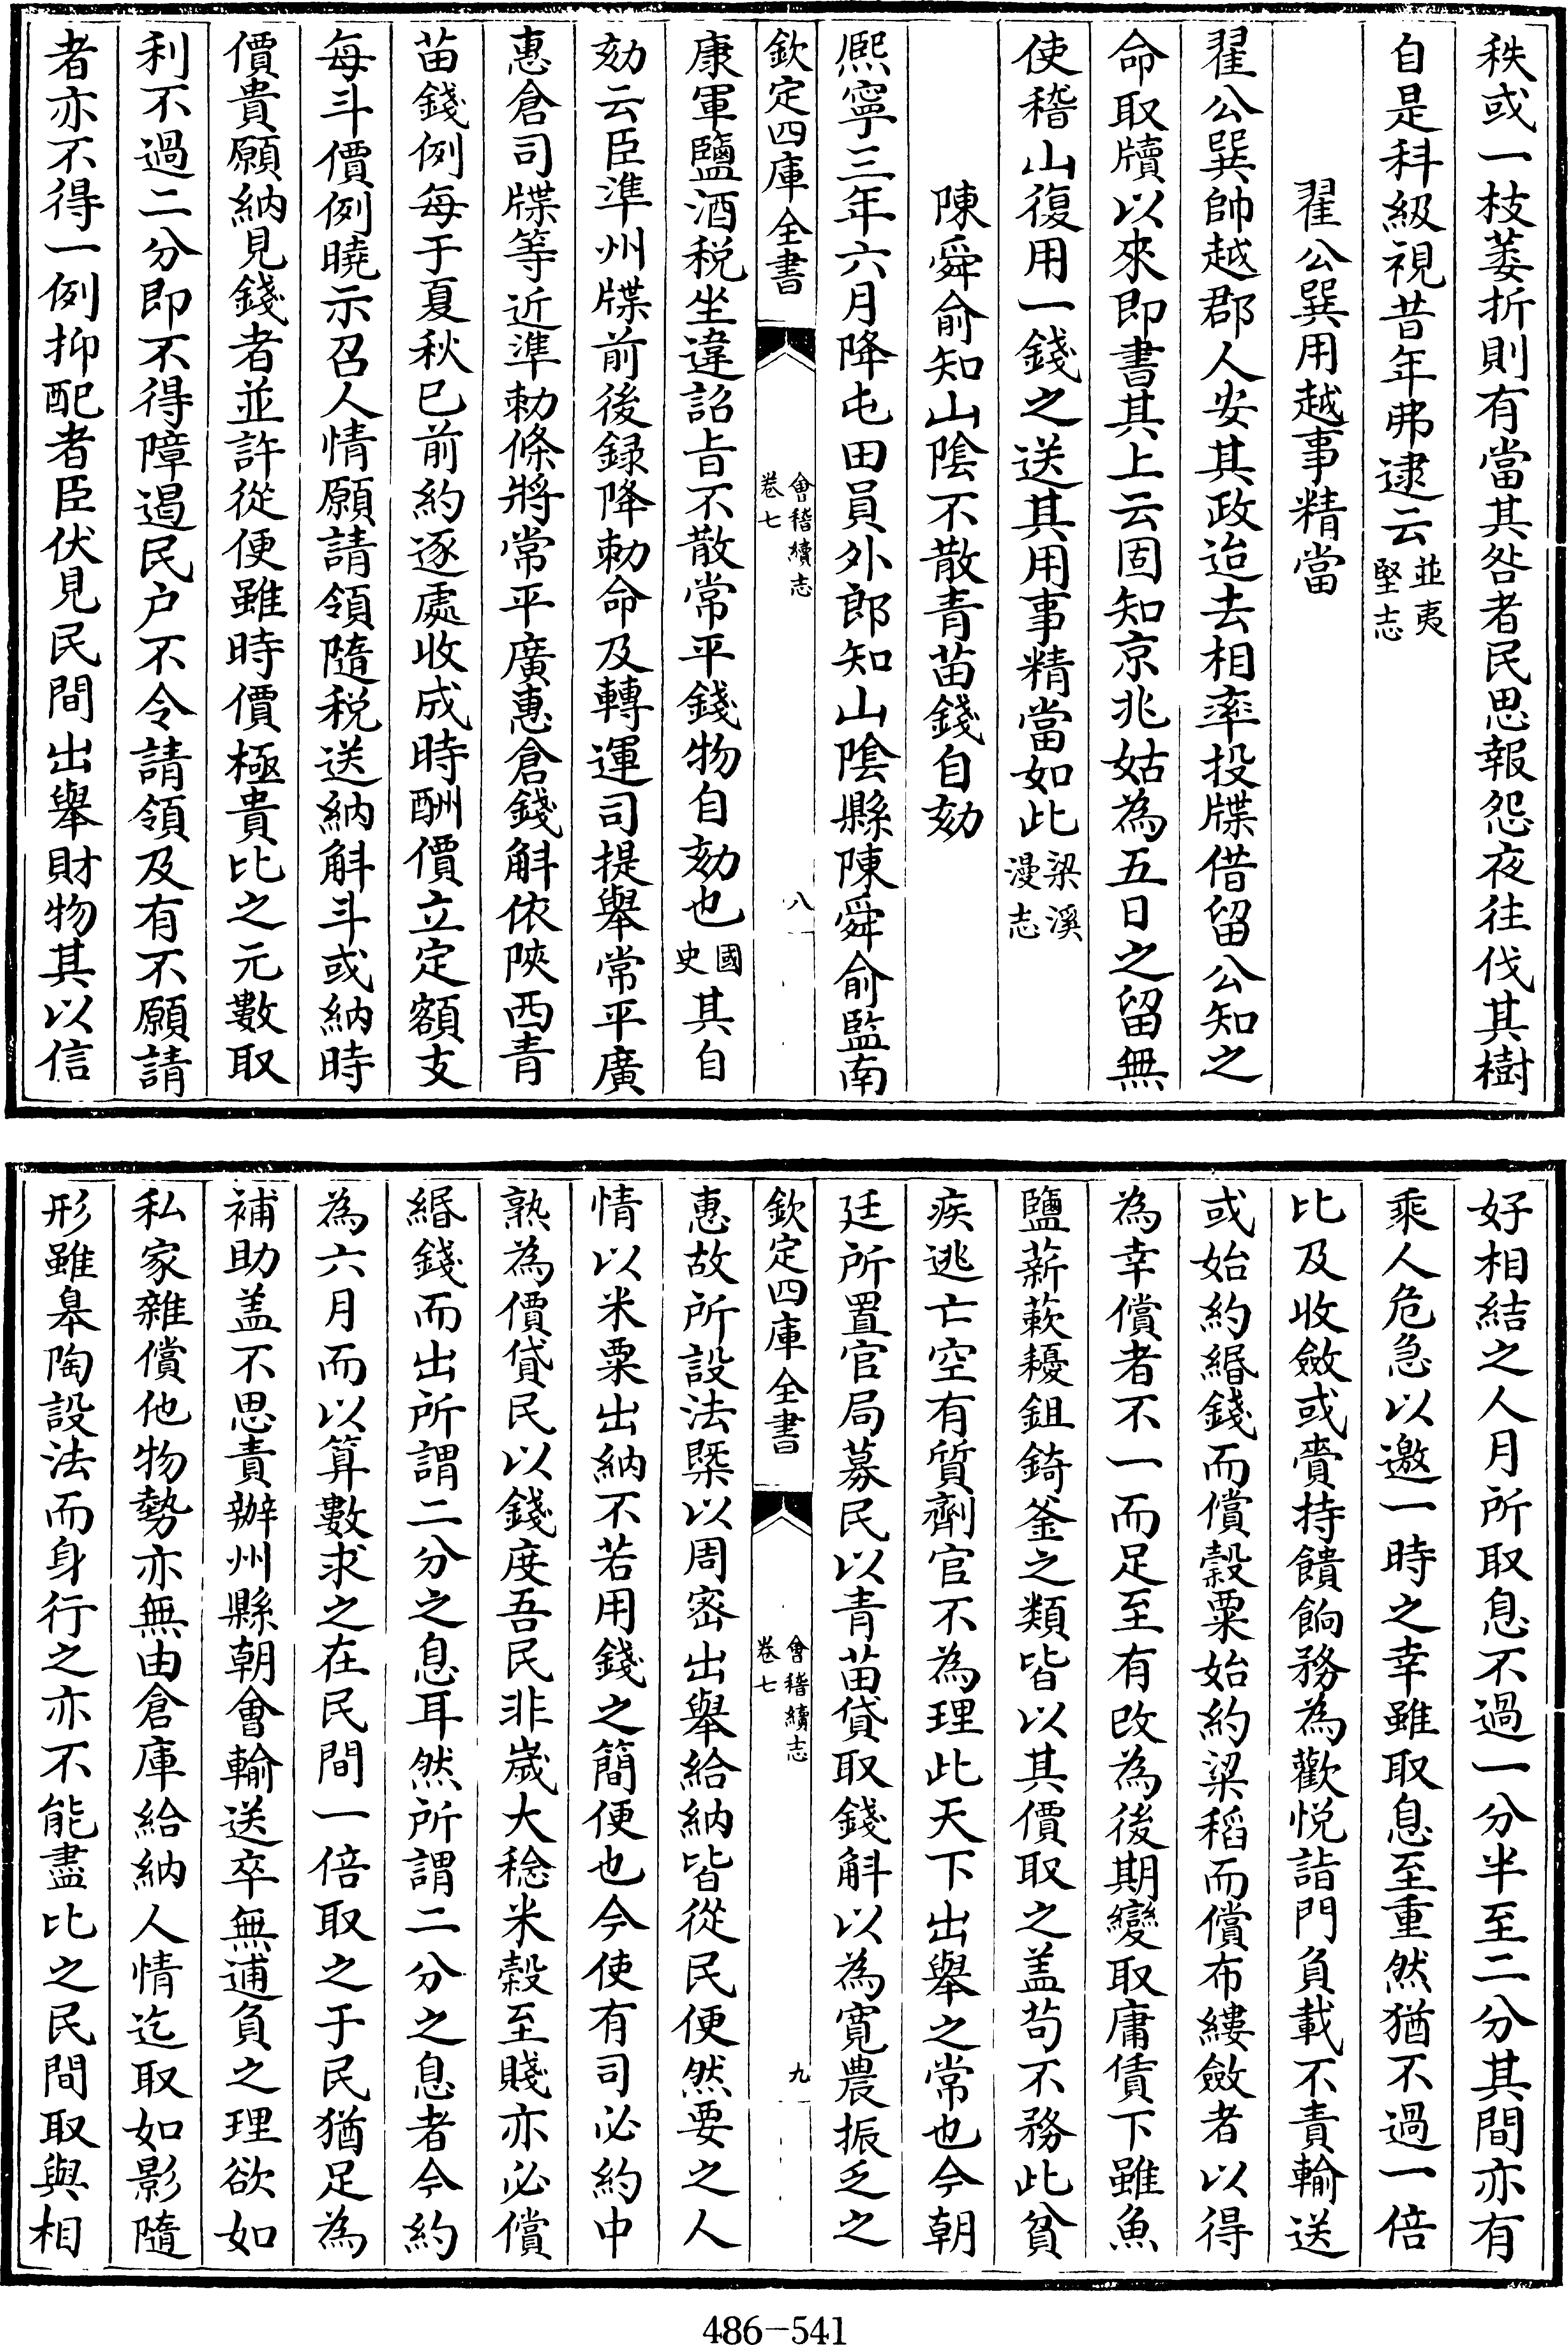 秩或一枝萎折則有當其咎者民思報怨夜往伐其樹
自是科級視昔年弗逮云並夷堅志
翟公巽用越事精當
翟公巽帥越郡人安其政迨去相率投牒借留公知之
命取牘以來即書其上云固知京兆姑為五日之留無
使稽山復用一錢之送其用事精當如此梁溪漫志
陳舜俞知山陰不散青苗錢自劾
熈寧三年六月降屯田員外郎知山陰縣陳舜俞監南
欽定四庫全書
會稽續志
卷七
八
康軍鹽酒税坐違詔旨不散常平錢物自劾也國史其自
劾云臣準州牒前後録降勅命及轉運司提舉常平廣
惠倉司牒等近準勅條將常平廣惠倉錢斛依陜西青
苗錢例每于夏秋已前約逐處收成時酬價立定額支
每斗價例曉示召人情願請領隨税送納斛斗或納時
價貴願納見錢者並許從便雖時價極貴比之元數取
利不過二分即不得障遏民户不令請領及有不願請
者亦不得一例抑配者臣伏見民間出舉財物其以信
好相結之人月所取息不過一分半至二分其間亦有
乘人危急以邀一時之幸雖取息至重然猶不過一倍
比及收斂或賫持饋餉務為歡悅詣門負載不責輸送
或始約緡錢而償榖粟始約粱稻而償布縷斂者以得
為幸償者不一而足至有改為後期變取庸賃下雖魚
鹽薪蔌耰鉏錡釜之類皆以其價取之盖苟不務此貧
疾逃亡空有質劑官不為理此天下出舉之常也今朝
廷所置官局募民以青苗貸取錢斛以為寛農振乏之
欽定四庫全書
會稽續志
卷七
九
惠故所設法槩以周密出舉給納皆從民便然要之人
情以米粟出納不若用錢之簡便也今使有司必約中
熟為價貸民以錢度吾民非嵗大稔米榖至賤亦必償
緡錢而出所謂二分之息耳然所謂二分之息者今約
為六月而以算數求之在民間一倍取之于民猶足為
補助盖不思責辦州縣朝會輸送卒無逋負之理欲如
私家雜償他物勢亦無由倉庫給納人情迄取如影隨
形雖臯陶設法而身行之亦不能盡比之民間取與相
486－541